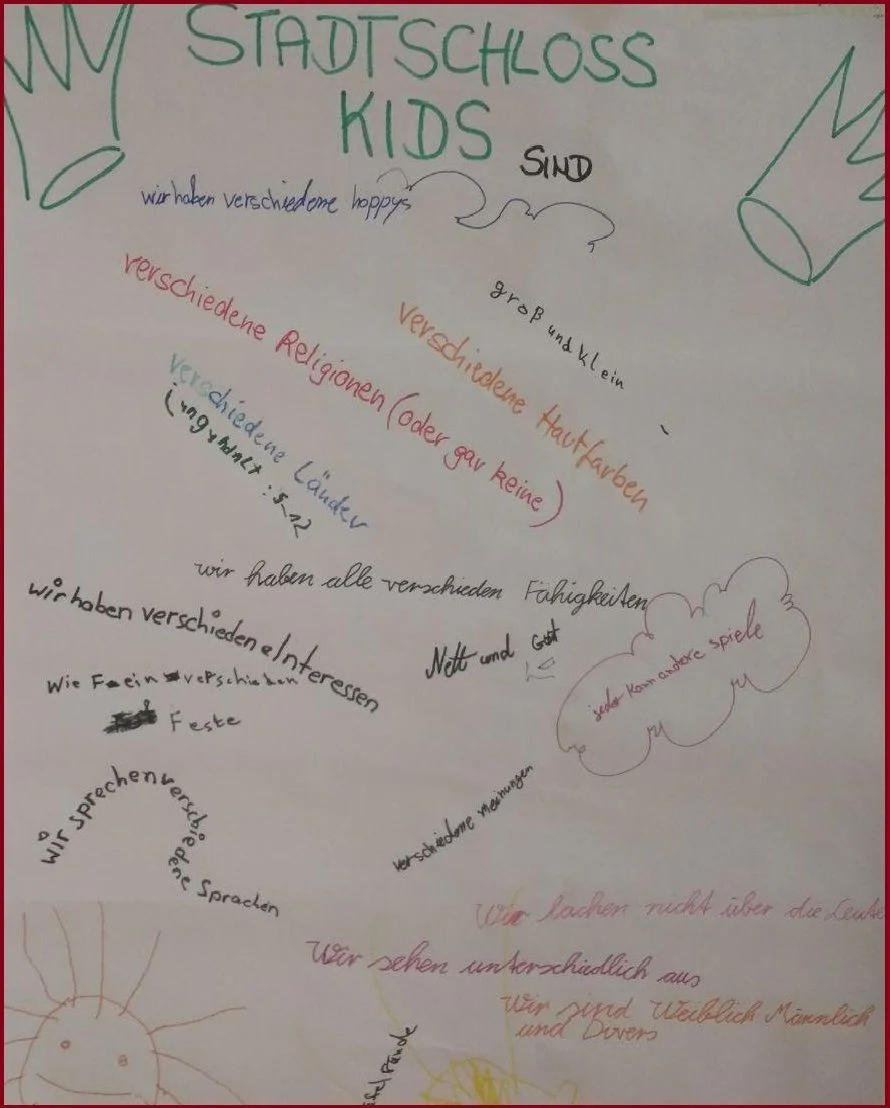 STADTSCHLOSS
KIDS
SIND
wir haben verschiedene hoppys
groß und klein
verschiedene Religionen (oder gar keine)
verschiedene Hautfarben
verschiedene Länder
wir haben alle verschieden Fähigkeiten
wir haben verschiedene Interessen
Nett und Gut
jeder kann andere spiele
Wie Feein verschieben
Feste
wir sprechen verschiedene Sprachen
verschiedene meinungen
Wir lachen nicht über die Leute
Wir sehen unterschiedlich aus
Wir sind Weiblich Männlich
und Divers